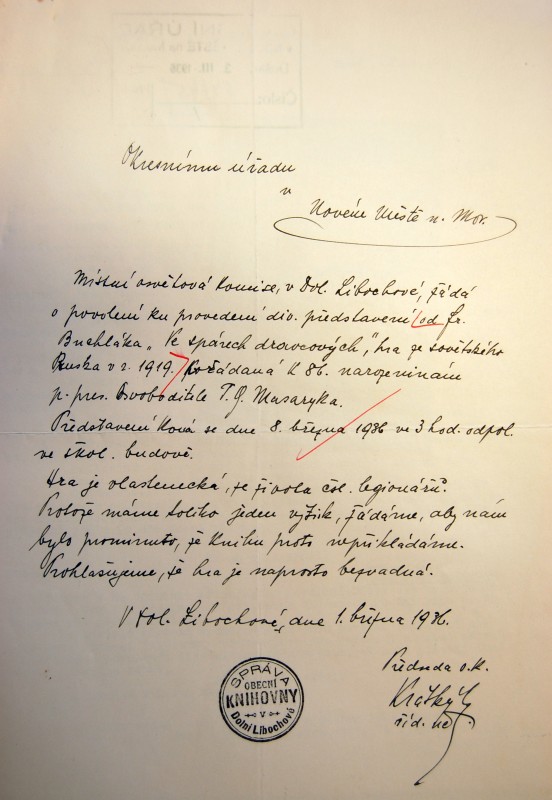 Okresnímu úřadu
v
Novém Městě n. Mor.
Místní osvětová komise, v Dol. Libochové, žádá
o povolení ku provedení div. představení od Fr.
Buchláka „Ve spárech dravcových", hra ze sovětského
Ruska v r. 1919. Pořádaná k 86. narozeninám
p. pres. Osvoboditele T. G. Masaryka.
Představení koná se dne 8. března 1936 ve 3 hod. odpol.
ve škol. budově.
Hra je vlastenecká, ze života čsl. legionářů.
Protože máme toliko jeden výtisk, žádáme, aby nám
bylo prominuto, že knihu proto nepřikládáme.
Prohlašujeme, že hra je naprosto bezvadná.
V Dol. Libochové, dne 1. března 1936.
Předseda o. k.
Krátký
říd. uč.
SPRÁVA
OBECNÍ
KNIHOVNY
V
Dolní Libochové